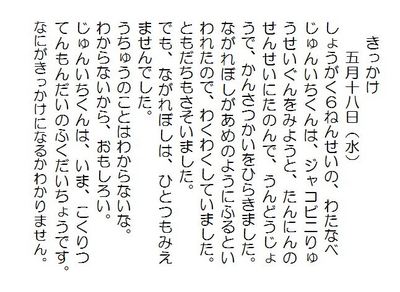 きっかけ
五月十八日（水）
しょうがく６ねんせいの、わたなべ
じゅんいちくんは、ジャコビニりゅ
うせいぐんをみようと、たんにんの
せんせいにたのんで、うんどうじょ
うで、かんさつかいをひらきました。
ながれぼしがあめのようにふるとい
われたので、わくわくしていました。
ともだちもさそいました。
でも、ながれぼしは、ひとつもみえ
ませんでした。
うちゅうのことはわからないな。
わからないから、おもしろい。
じゅんいちくんは、いま、こくりつ
てんもんだいのふくだいちょうです。
なにがきっかけになるかわかりません。